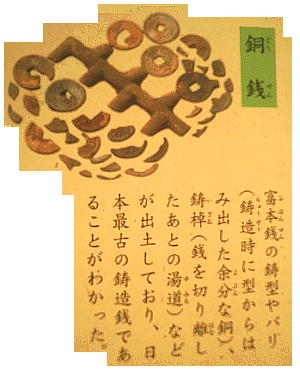 銅銭
富本銭の鋳型やバリ
（鋳造時に型からは
み出した余分な銅）、
鋳棹（銭を切り離し
たあとの湯道）など
が出土しており、日
本最古の鋳造銭であ
ることがわかった。